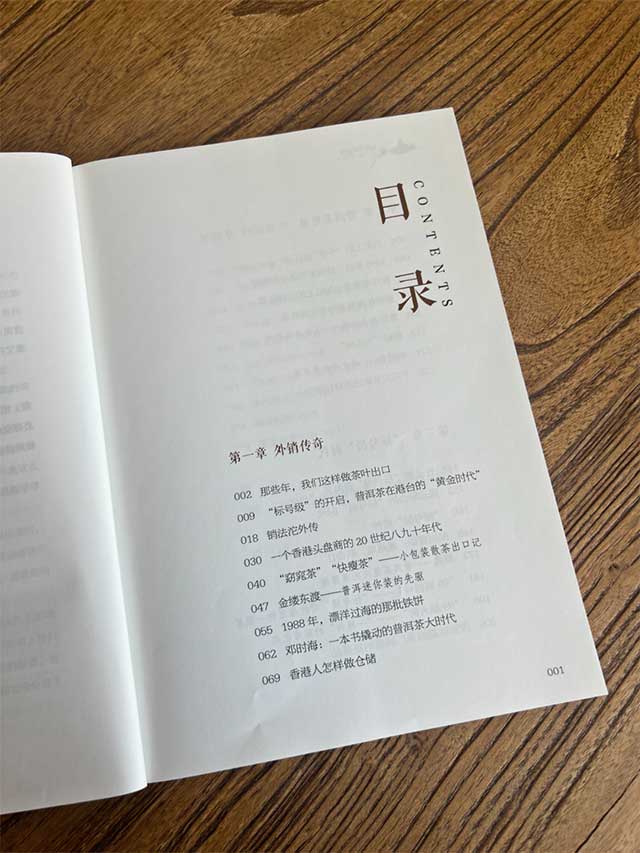 目录
CONTENTS
第一章 外销传奇
002 那些年，我们这样做茶叶出口
009 “标号级”的开启，普洱茶在港台的“黄金时代”
018 销法沱外传
030 一个香港头盘商的 20 世纪八九十年代
040 “窈窕茶”“快瘦茶”——小包装散茶出口记
047 金缕东渡——普洱迷你装的先驱
055 1988 年，漂洋过海的那批铁饼
062 邓时海：一本书撬动的普洱茶大时代
069 香港人怎样做仓储
001